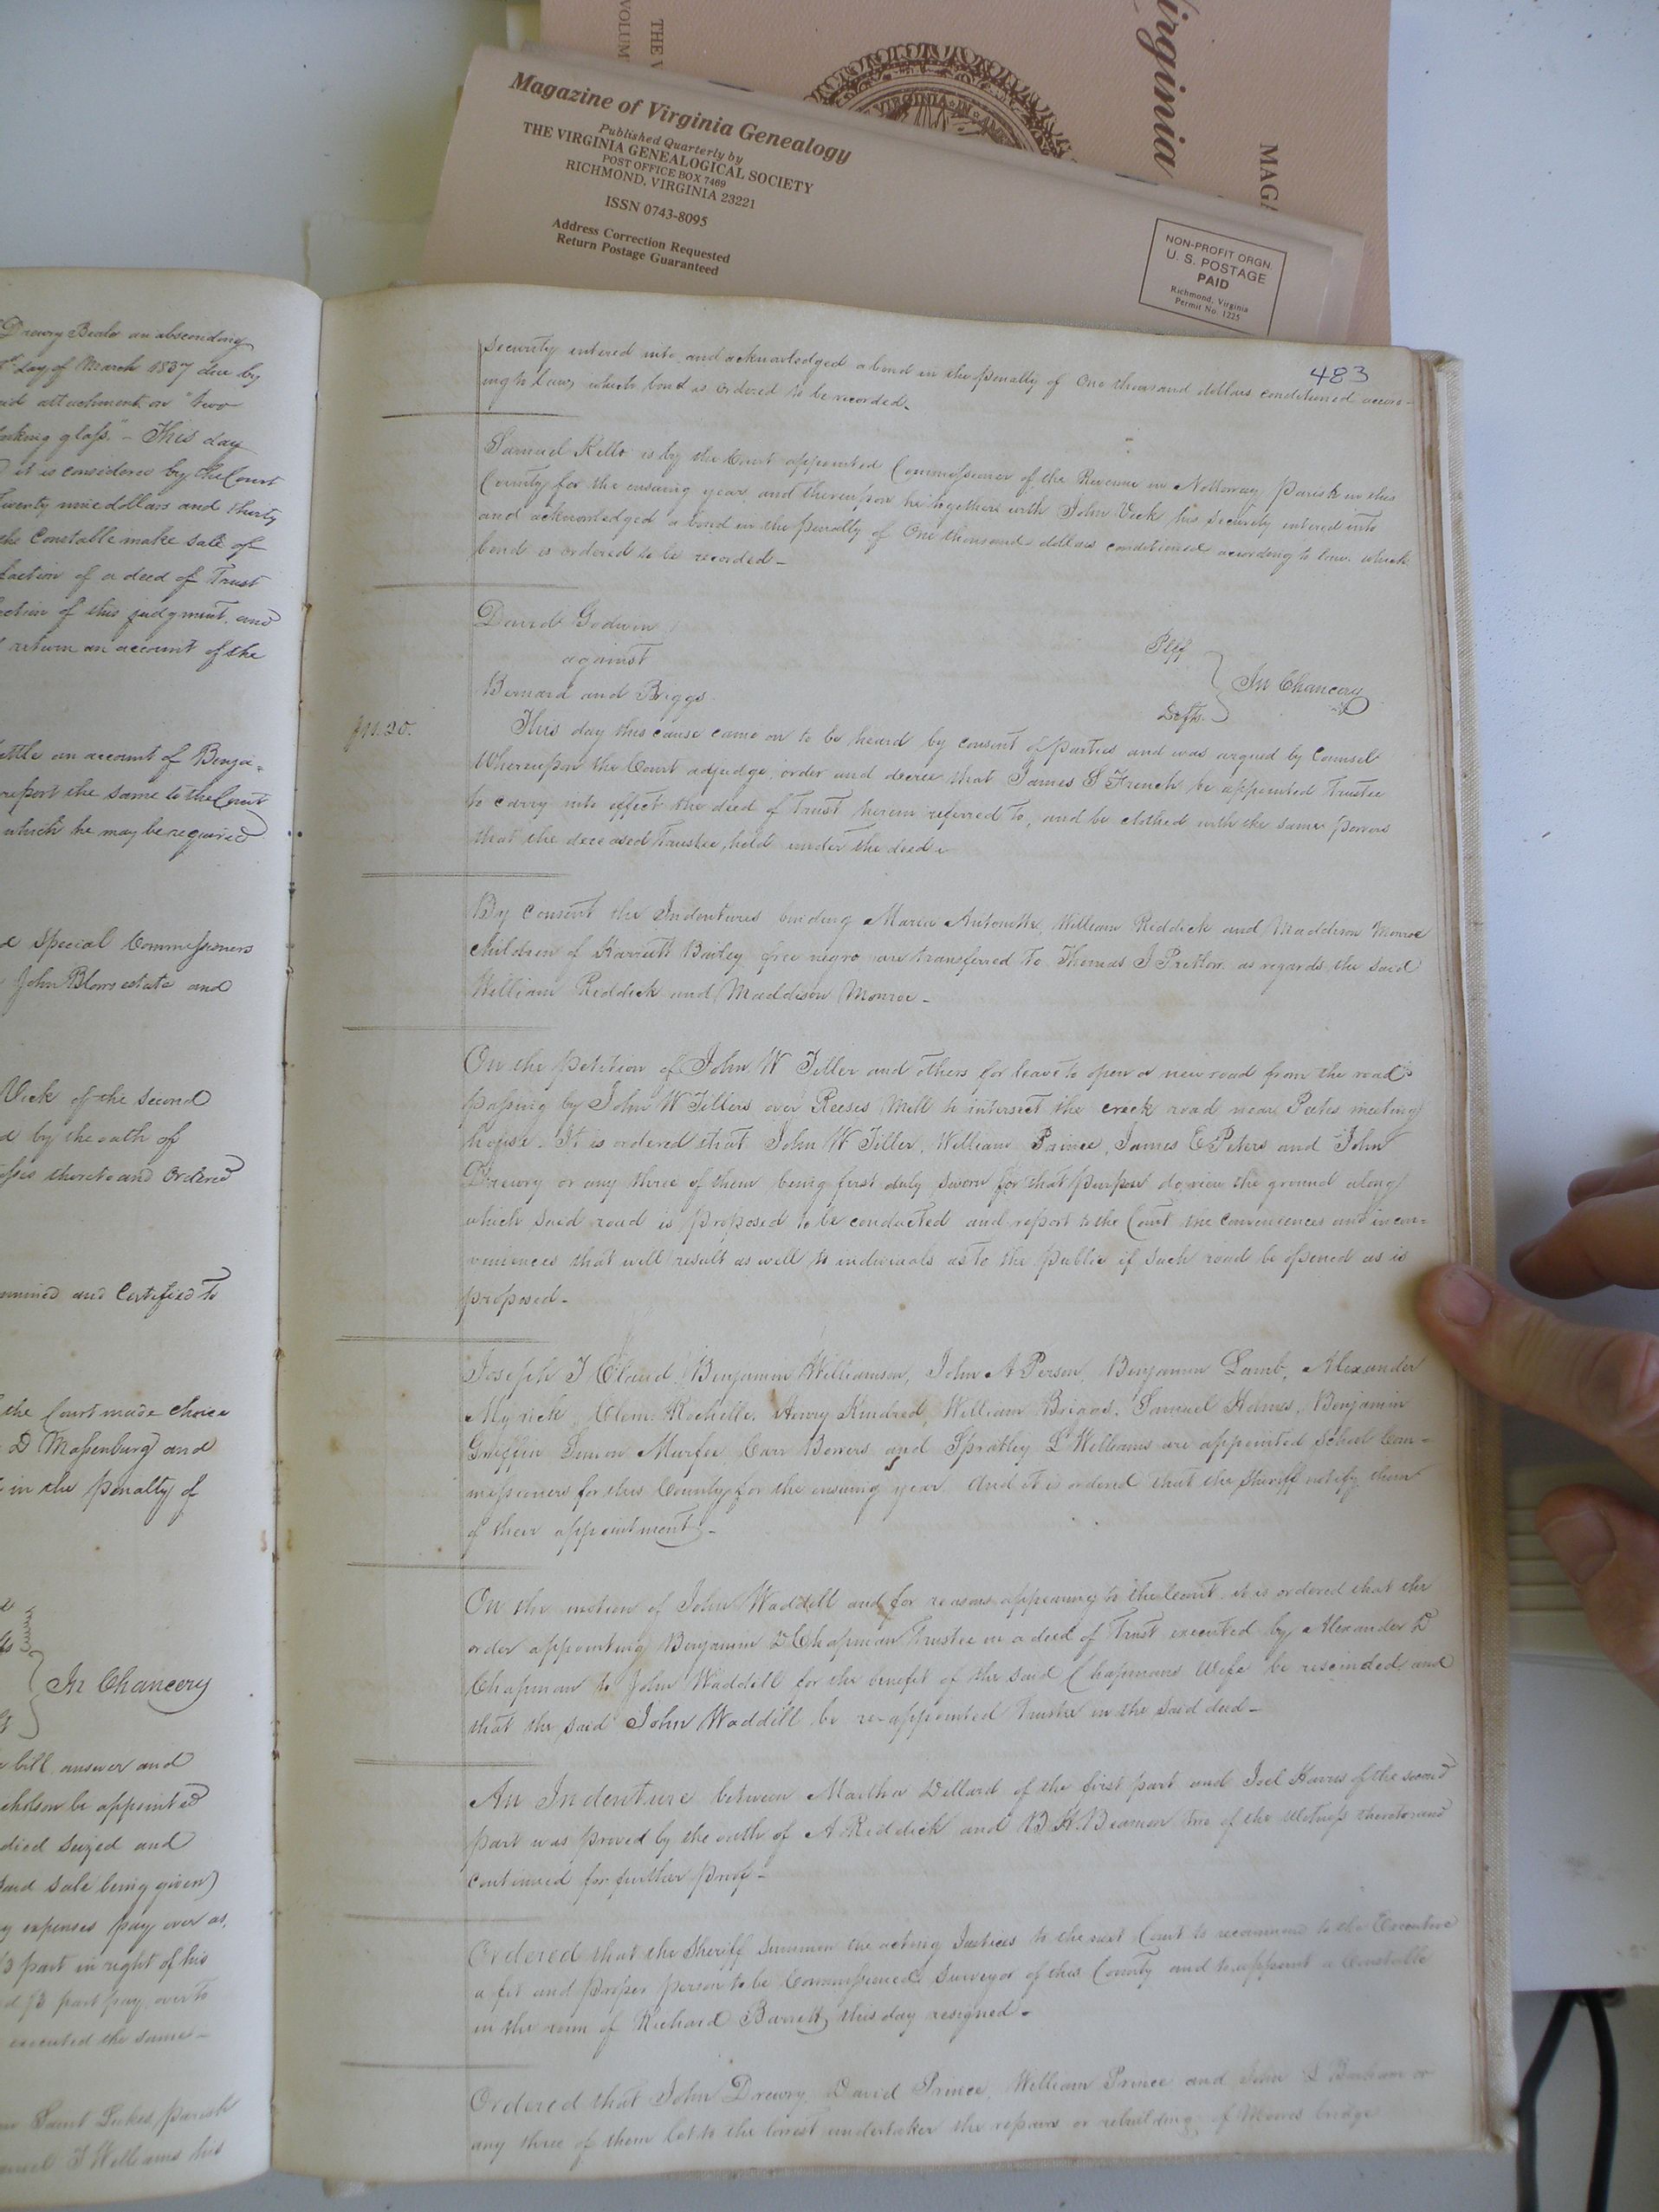 THE V
VOLUM
Virginia
MAGA
VIRGINIA IN AM
Magazine of Virginia Genealogy
Published Quarterly by
THE VIRGINIA GENEALOGICAL SOCIETY
POST OFFICE BOX 7469
RICHMOND, VIRGINIA 23221
ISSN 0743-8095
Address Correction Requested
Return Postage Guaranteed
NON-PROFIT ORGN.
U. S. POSTAGE
PAID
Richmond, Virginia
Permit No. 1225
Drewry Beale an absconding
day of March 1837 due by
attachment on "two
looking glass." - This day
it is considered by the Court
Twenty nine dollars and thirty
the Constable make sale of
faction of a deed of Trust
ction of this judgment, and
return an account of the
ettle an account of Benja=
report the same to the Court
which he may be required
Special Commissioners
John Blows estate and
Vick of the second
by the oath of
thereto and Ordered
and Certified to
the Court made choice
D Massenburg and
in the penalty of
In Chancery
bill, answer and
cholson be appointed
died seized and
said sale being given)
expenses pay over as,
/3 part in right of his
part pay over to
executed the same -
Saint Lukes parish
T Williams his
483
Security entered into and acknowledged a bond in the penalty of One thousand dollars conditioned accord-
ing to Law, which bond is ordered to be recorded.
Samuel Kello is by the Court appointed Commissioner of the Revenue in Nottoway Parish in this
County for the ensuing year and thereupon he together with John Vick his security entered into
and acknowledged a bond in the penalty of One thousand dollars conditioned according to law. which
bond is ordered to be recorded -
David Godwin
Plff
against
In Chancery
Bernard and Briggs.
Defts.
This day this cause came on to be heard by consent of parties and was argued by Counsel
Whereupon the Court adjudge, order and decree that James S French be appointed Trustee
to carry into effect the deed of Trust herein referred to, and be clothed with the same powers
that the deceased Trustee, held under the deed
By Consent the Indentures binding Maria Antonette, William Reddick and Maddison Monroe
children of Harriett Bailey free negro are transferred to Thomas J Pretlow as regards the said
William Reddick and Maddison Monroe -
On the petition of John W Tiller and others for leave to open a new road from the road
passing by John W Tillers over Reeses Mill to intersect the creek road near Peetes meeting
house. It is ordered that John W Tiller, William Prince, James E Peters and John
Drewry or any three of them being first duly sworn for that purpose do view the ground along
which said road is proposed to be conducted and report to the Court the conveniences and incon=
veniences that will result as well to individuals as to the public if such road be opened as is
proposed -
Joseph T Claud, Benjamin Williamson, John A Person, Benjamin Lamb, Alexander
Myrick, Clem: Rochelle, Henry Kindred, William Briggs, Samuel Holmes, Benjamin
Griffin Simon Murfee Carr Bowers and Spratley Williams are appointed School Com-
missioners for this County for the ensuing year And it is ordered that the Sheriff notify them
of their appointment -
On the motion of John Waddill and for reasons appearing to the Court it is ordered that the
order appointing Benjamin D Chapman Trustee in a deed of Trust executed by Alexander D
Chapman to John Waddill for the benefit of the said Chapmans Wife be rescinded and
that the said John Waddill be re-appointed Trustee in the said deed -
An Indenture between Martha Dillard of the first part and Joel Harris of the second
part was proved by the oath of A Riddick and B H Beamon two of the Witness thereto and
continued for further proof -
Ordered that the Sheriff summon the acting Justices to the next Court to recommend to the Executive
a fit and proper person to be Commissioned Surveyor of this County and to appoint a Constable
in the room of Richard Barrett this day resigned -
Ordered that John Drewry, David Prince, William Prince and John Barham or
any three of them let to the lowest undertaker the repairs or rebuilding of bridge